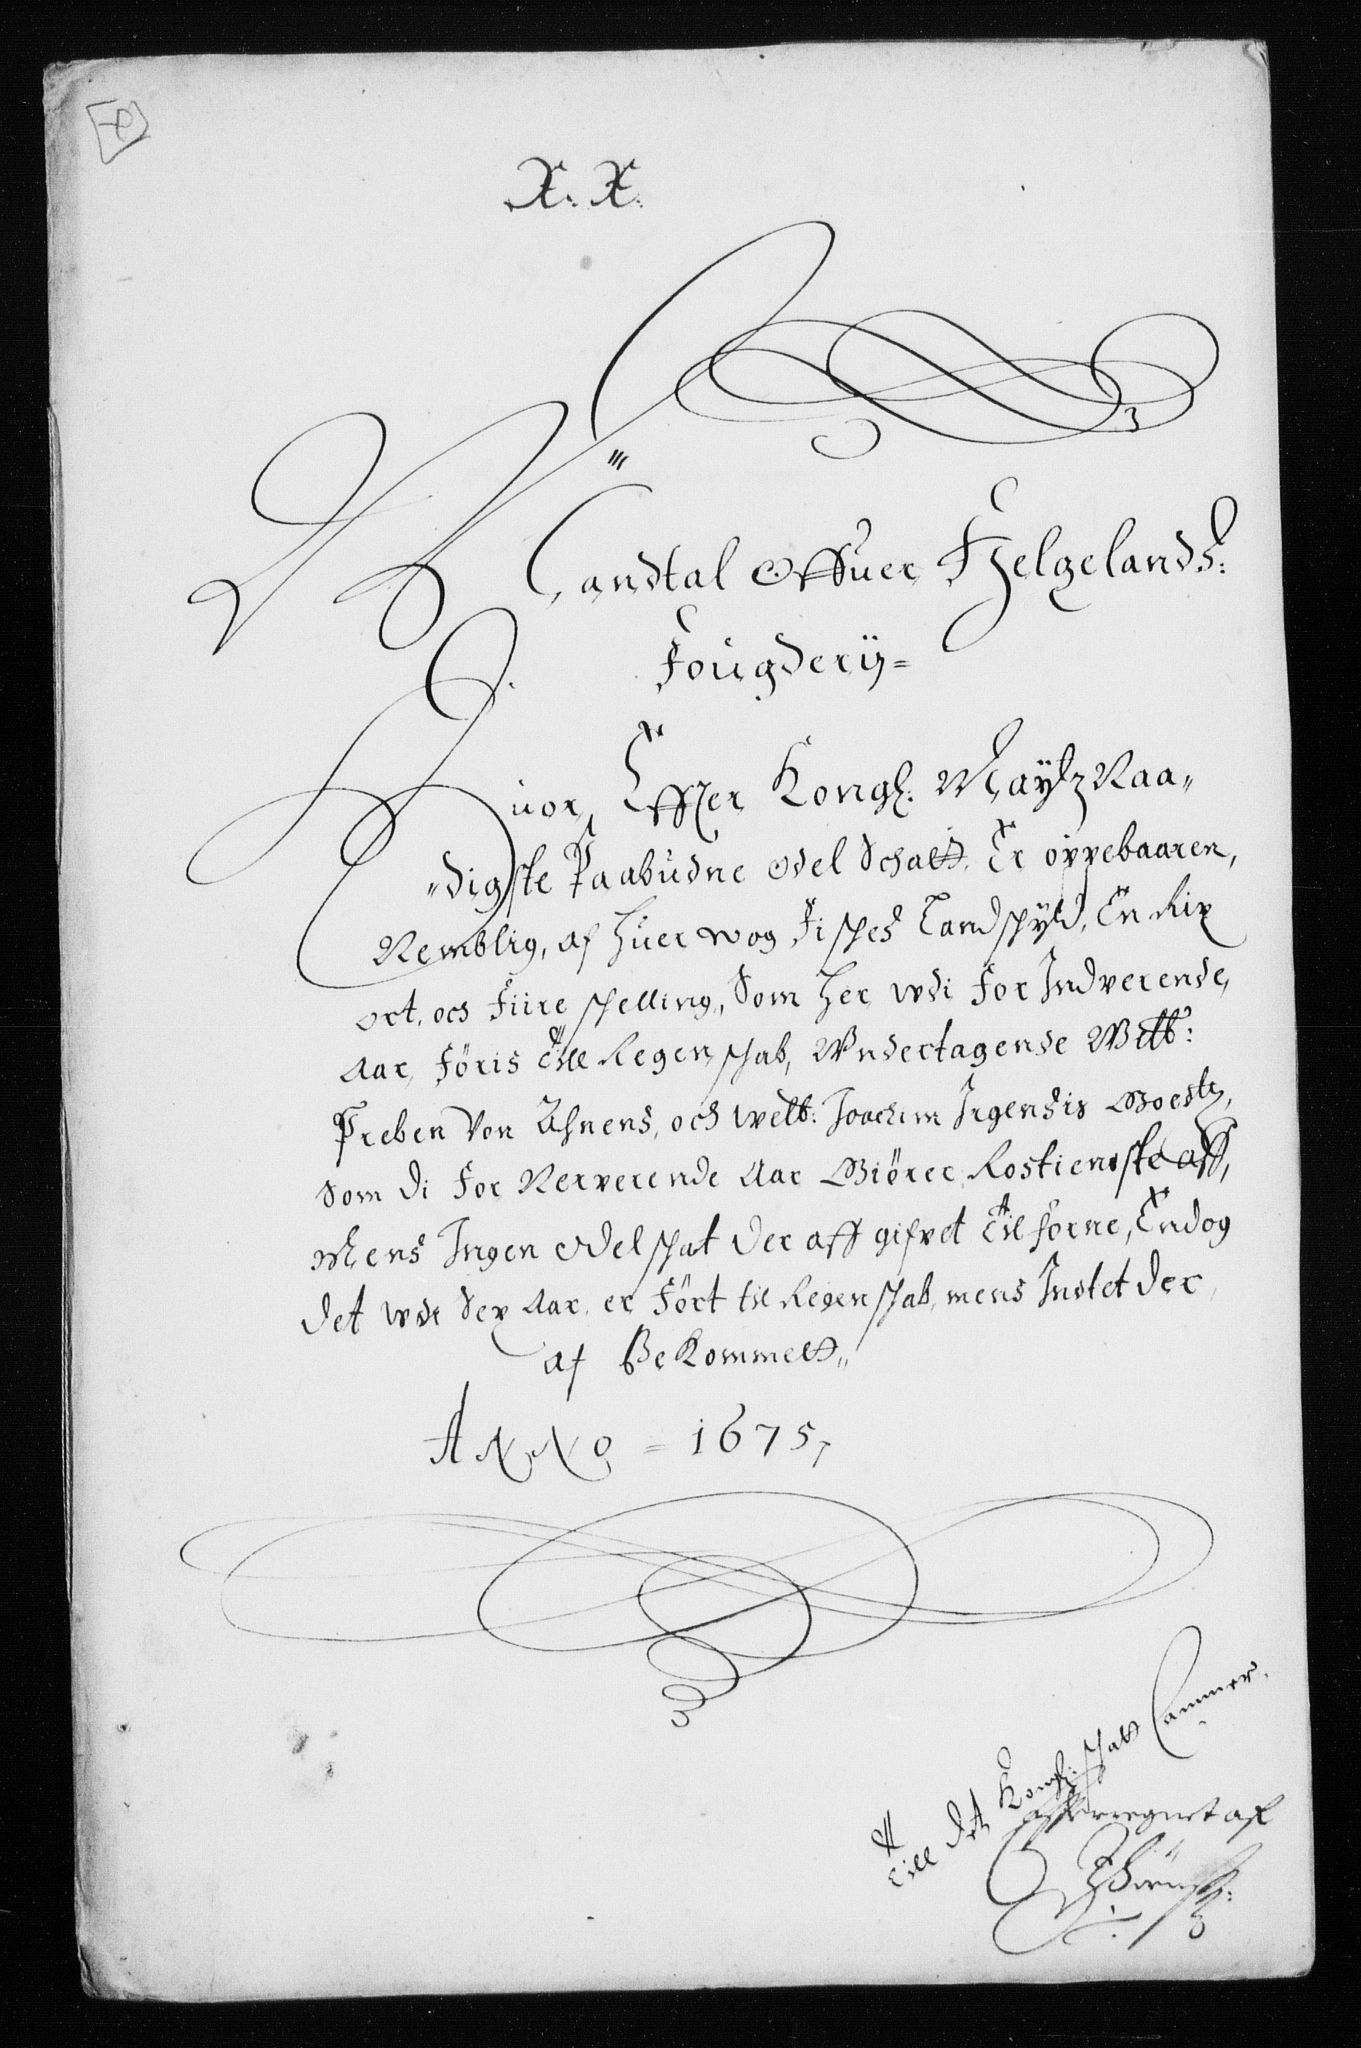 X. X.
Landtal Offuer Helgelands:
Fougderij=
Huor Effter Kongl: Mayts Naa"
"digste Paabudne Odel Schatt, Er oppebaaren,
Nemblig, af huer wog Fisches Landschyld, En Rix
ort, och Fiire schelling, Som her udi For Indverende,
Aar, Föris Till Regenschab, Undertagende Welb:
Preben Von Ahnens, och welb: Joachim Irgensis Goedts,
Som di For Nerverende Aar Giörer Rostieniste aff,
Mens Ingen Odelschat der aff gifvet Tilforne, Endog
det udi Sex Aar, er Fört til Regenschab, mens Intet der
af Bekommett"
ANNO = 1675,
Till det Kongl: Schatt Cammer,
af